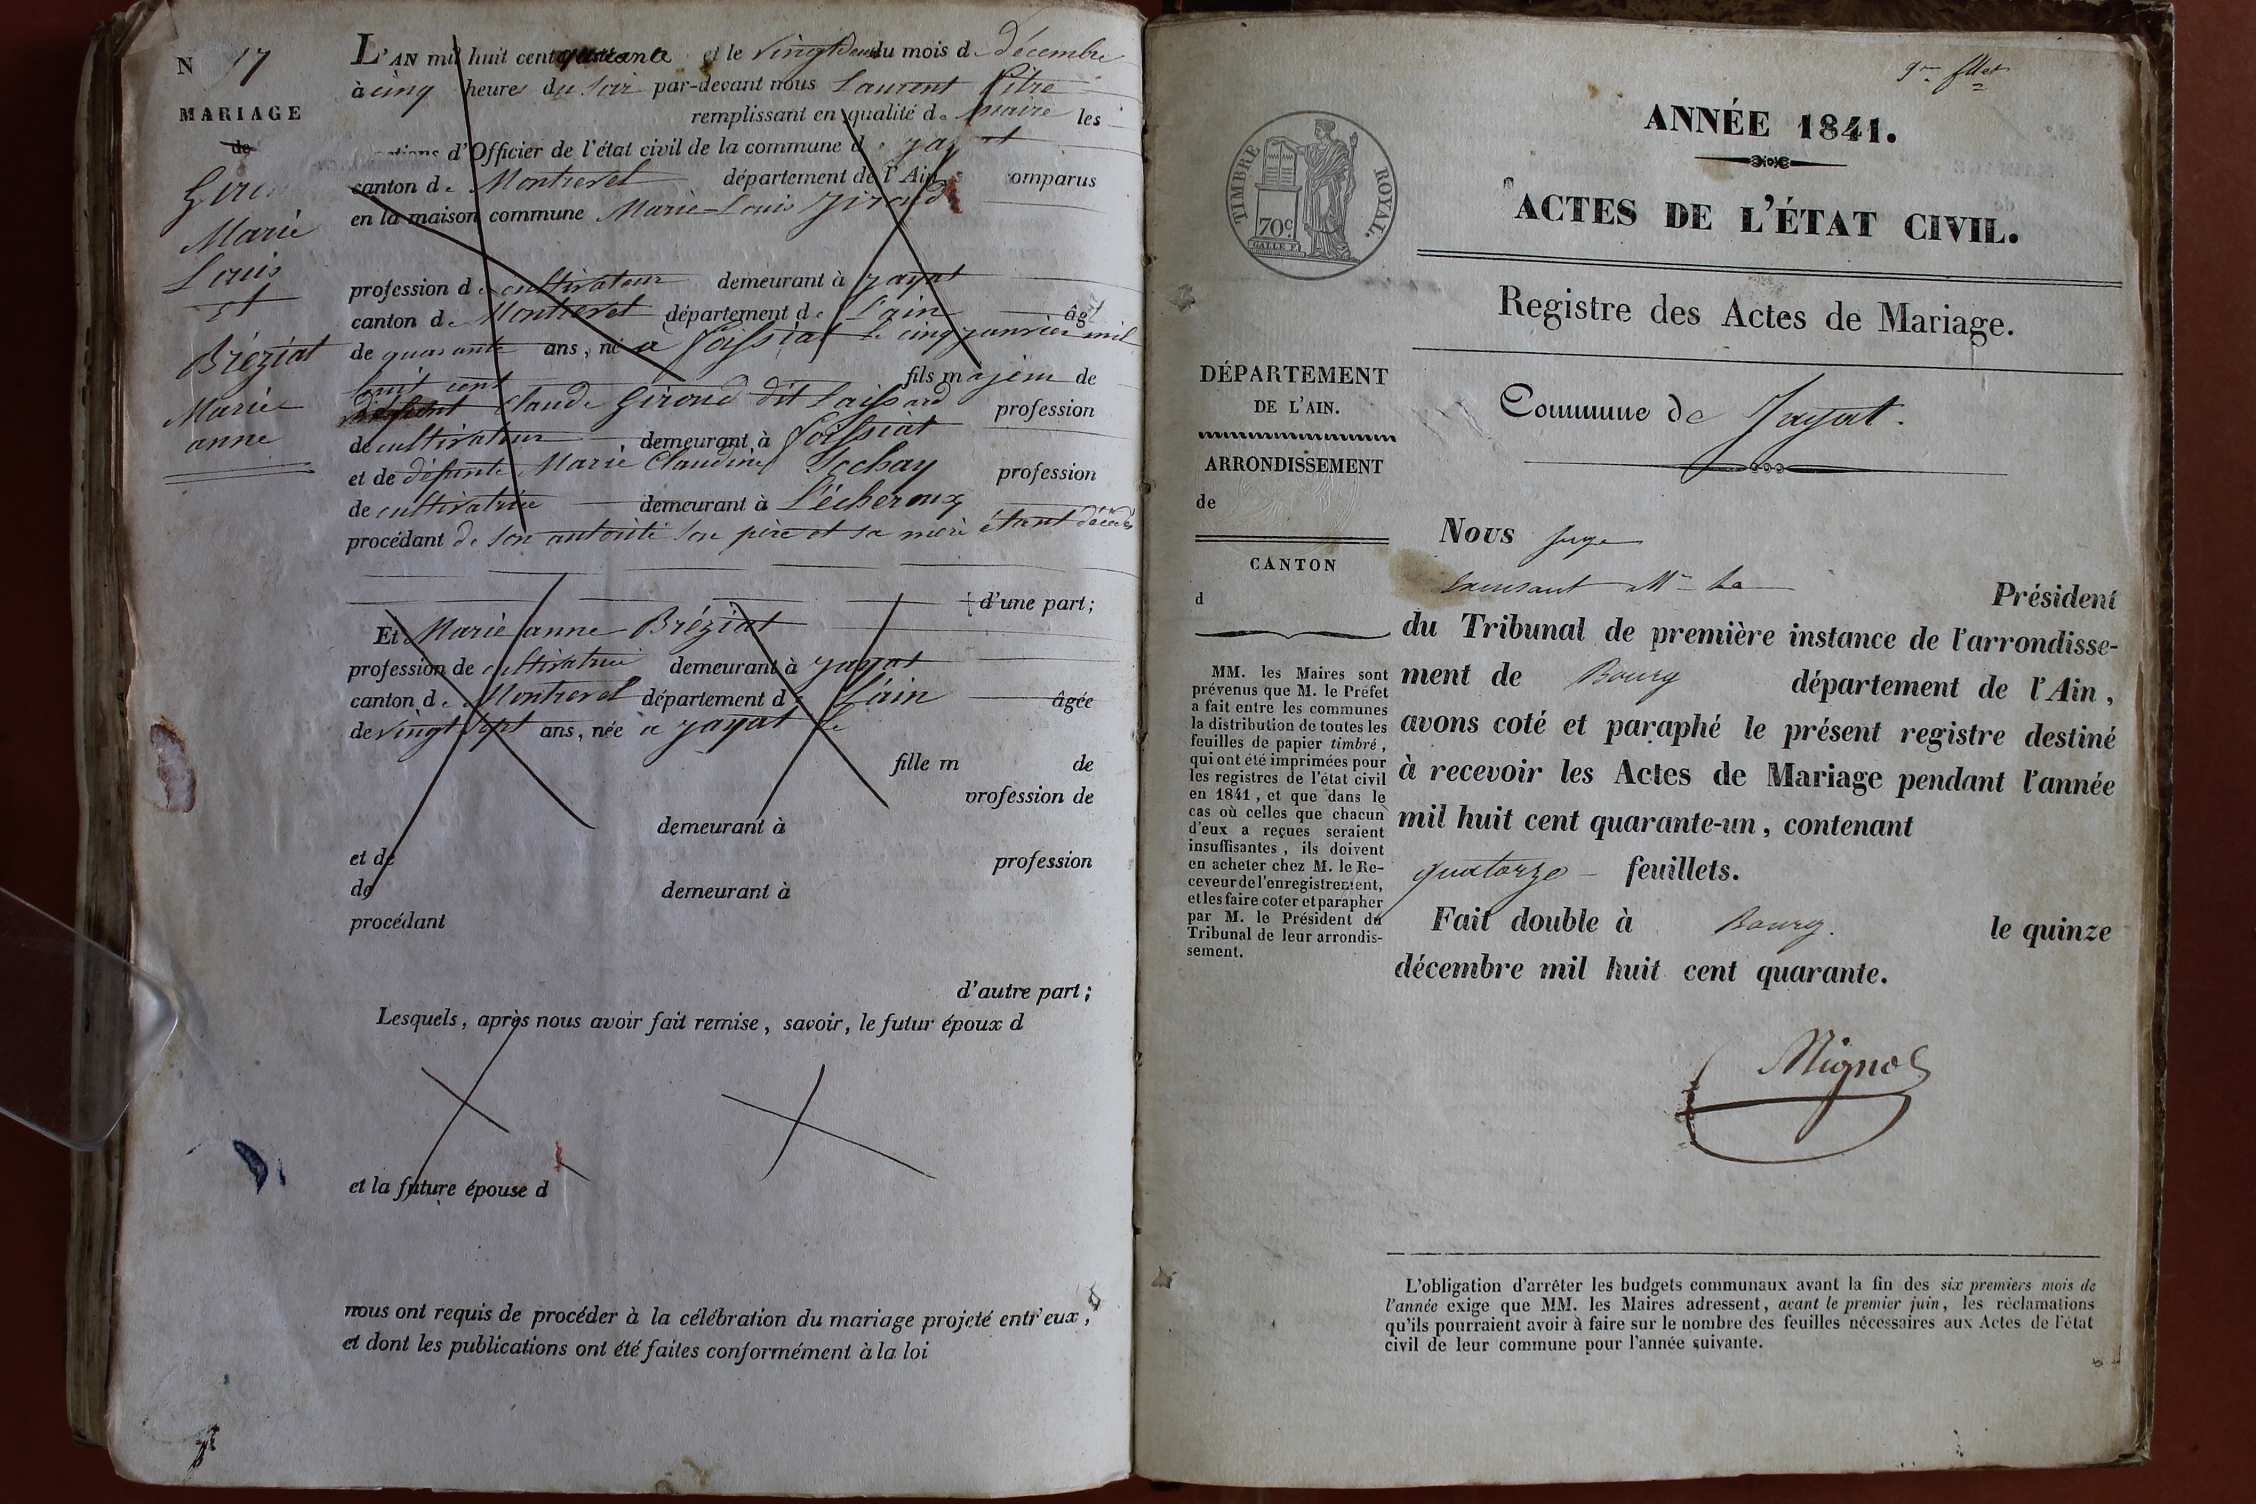 N 17
MARIAGE
de
Marie
Louis
et
Bréziat
Marie
anne
L'AN mil huit cent quarante et le vingt deux du mois de décembre
à cinq heures du soir par-devant nous Laurent Pitre
remplissant en qualité de maire les
d'Officier de l'état civil de la commune d
canton de Montrevel département de l'Ain omparus
en la maison commune Marie-Louis Giroud
profession de cultivateur demeurant à Jayat
canton de Montrevel département de l'ain âgé
de quarante ans, né à Foissiat le cinq janvier mil
huit cent fils majeur de
Claude Giroud dit profession
de cultivateur demeurant à Foissiat
et de défunte Marie Claudine profession
de cultivatrice demeurant à Lécheroux
procédant de son autorité son père et sa mère étant décédés
d'une part;
Et Marie anne Bréziat
profession de cultivatrice demeurant à Jayat
canton de Montrevel département de l'ain âgée
de vingt sept ans, née à Jayat le
fille m de
profession de
demeurant à
et de profession
de demeurant à
procédant
d'autre part;
Lesquels, après nous avoir fait remise, savoir, le futur époux d
et la future épouse d
nous ont requis de procéder à la célébration du mariage projeté entr'eux,
et dont les publications ont été faites conformément à la loi
TIMBRE ROYAL.
70c.
GALLE F.
ANNÉE 1841.
ACTES DE L'ÉTAT CIVIL.
Registre des Actes de Mariage.
DÉPARTEMENT
DE L'AIN.
ARRONDISSEMENT
de
CANTON
d
MM. les Maires sont
prévenus que M. le Préfet
a fait entre les communes
la distribution de toutes les
feuilles de papier timbré,
qui ont été imprimées pour
les registres de l'état civil
en 1841, et que dans le
cas où celles que chacun
d'eux a reçues seraient
insuffisantes, ils doivent
en acheter chez M. le Re-
ceveur de l'enregistrement,
et les faire coter et parapher
par M. le Président du
Tribunal de leur arrondis-
sement.
Commune de Jayat.
Nous juge
Mr le Président
du Tribunal de première instance de l'arrondisse-
ment de Bourg département de l'Ain,
avons coté et paraphé le présent registre destiné
à recevoir les Actes de Mariage pendant l'année
mil huit cent quarante-un, contenant
quatorze feuillets.
Fait double à Bourg. le quinze
décembre mil huit cent quarante.
L'obligation d'arrêter les budgets communaux avant la fin des six premiers mois de
l'année exige que MM. les Maires adressent, avant le premier juin, les réclamations
qu'ils pourraient avoir à faire sur le nombre des feuilles nécessaires aux Actes de l'état
civil de leur commune pour l'année suivante.